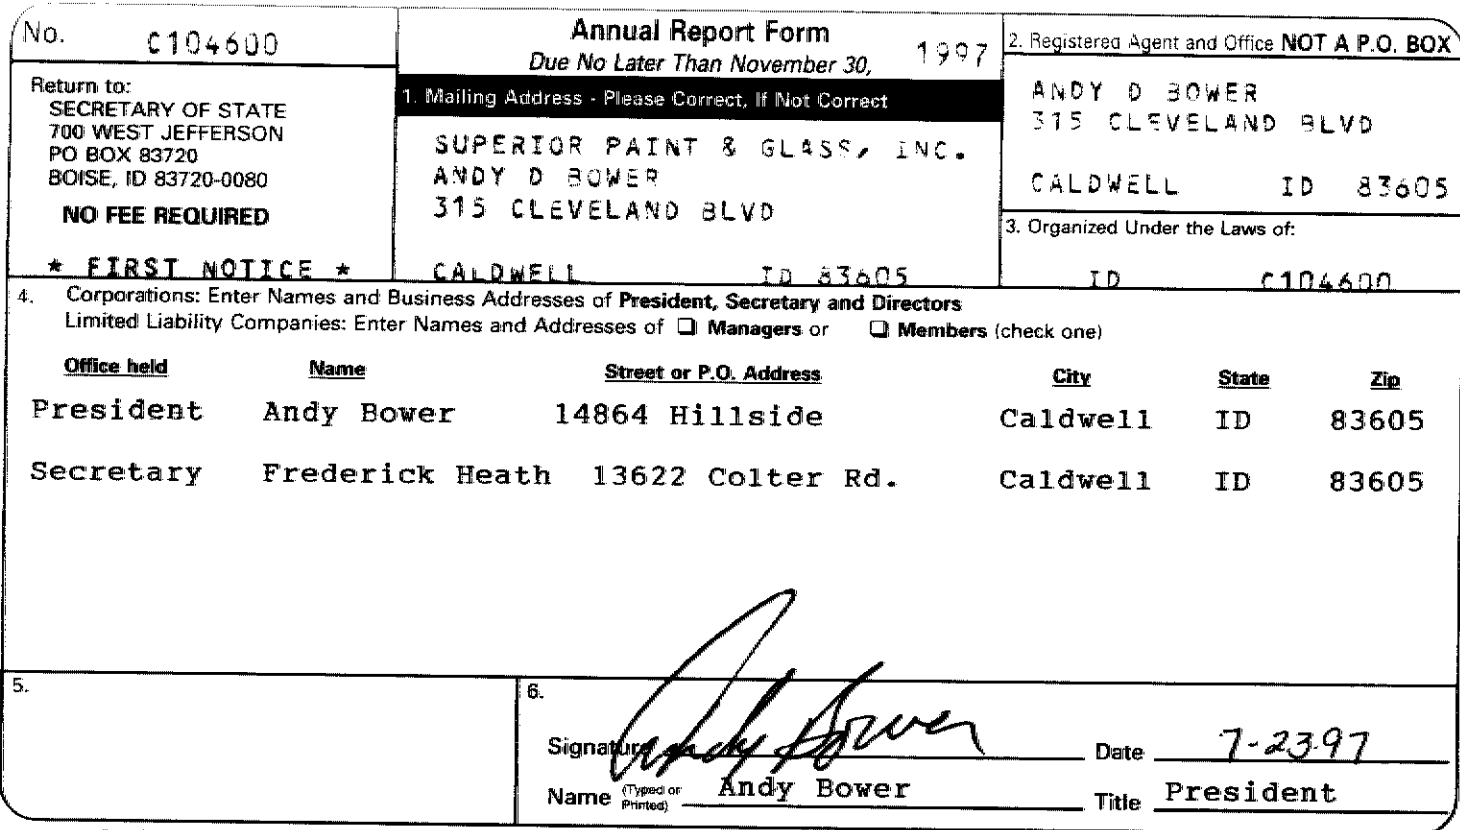 No. C104600
Return to:
SECRETARY OF STATE
700 WEST JEFFERSON
PO BOX 83720
BOISE, ID 83720-0080
NO FEE REQUIRED
* FIRST NOTICE *
Annual Report Form
Due No Later Than November 30, 1997
1. Mailing Address - Please Correct, If Not Correct
SUPERIOR PAINT & GLASS, INC.
ANDY D BOWER
315 CLEVELAND BLVD
CALDWELL ID 83605
2. Registered Agent and Office NOT A P.O. BOX
ANDY D BOWER
315 CLEVELAND BLVD
CALDWELL ID 83605
3. Organized Under the Laws of:
ID C104600
4. Corporations: Enter Names and Business Addresses of President, Secretary and Directors
Limited Liability Companies: Enter Names and Addresses of ❏ Managers or ❏ Members (check one)
Office held Name Street or P.O. Address City State Zip
President Andy Bower 14864 Hillside Caldwell ID 83605
Secretary Frederick Heath 13622 Colter Rd. Caldwell ID 83605
5.
6.
Signature Andy Bower Date 7-23-97
Name (Typed or Printed) Andy Bower Title President